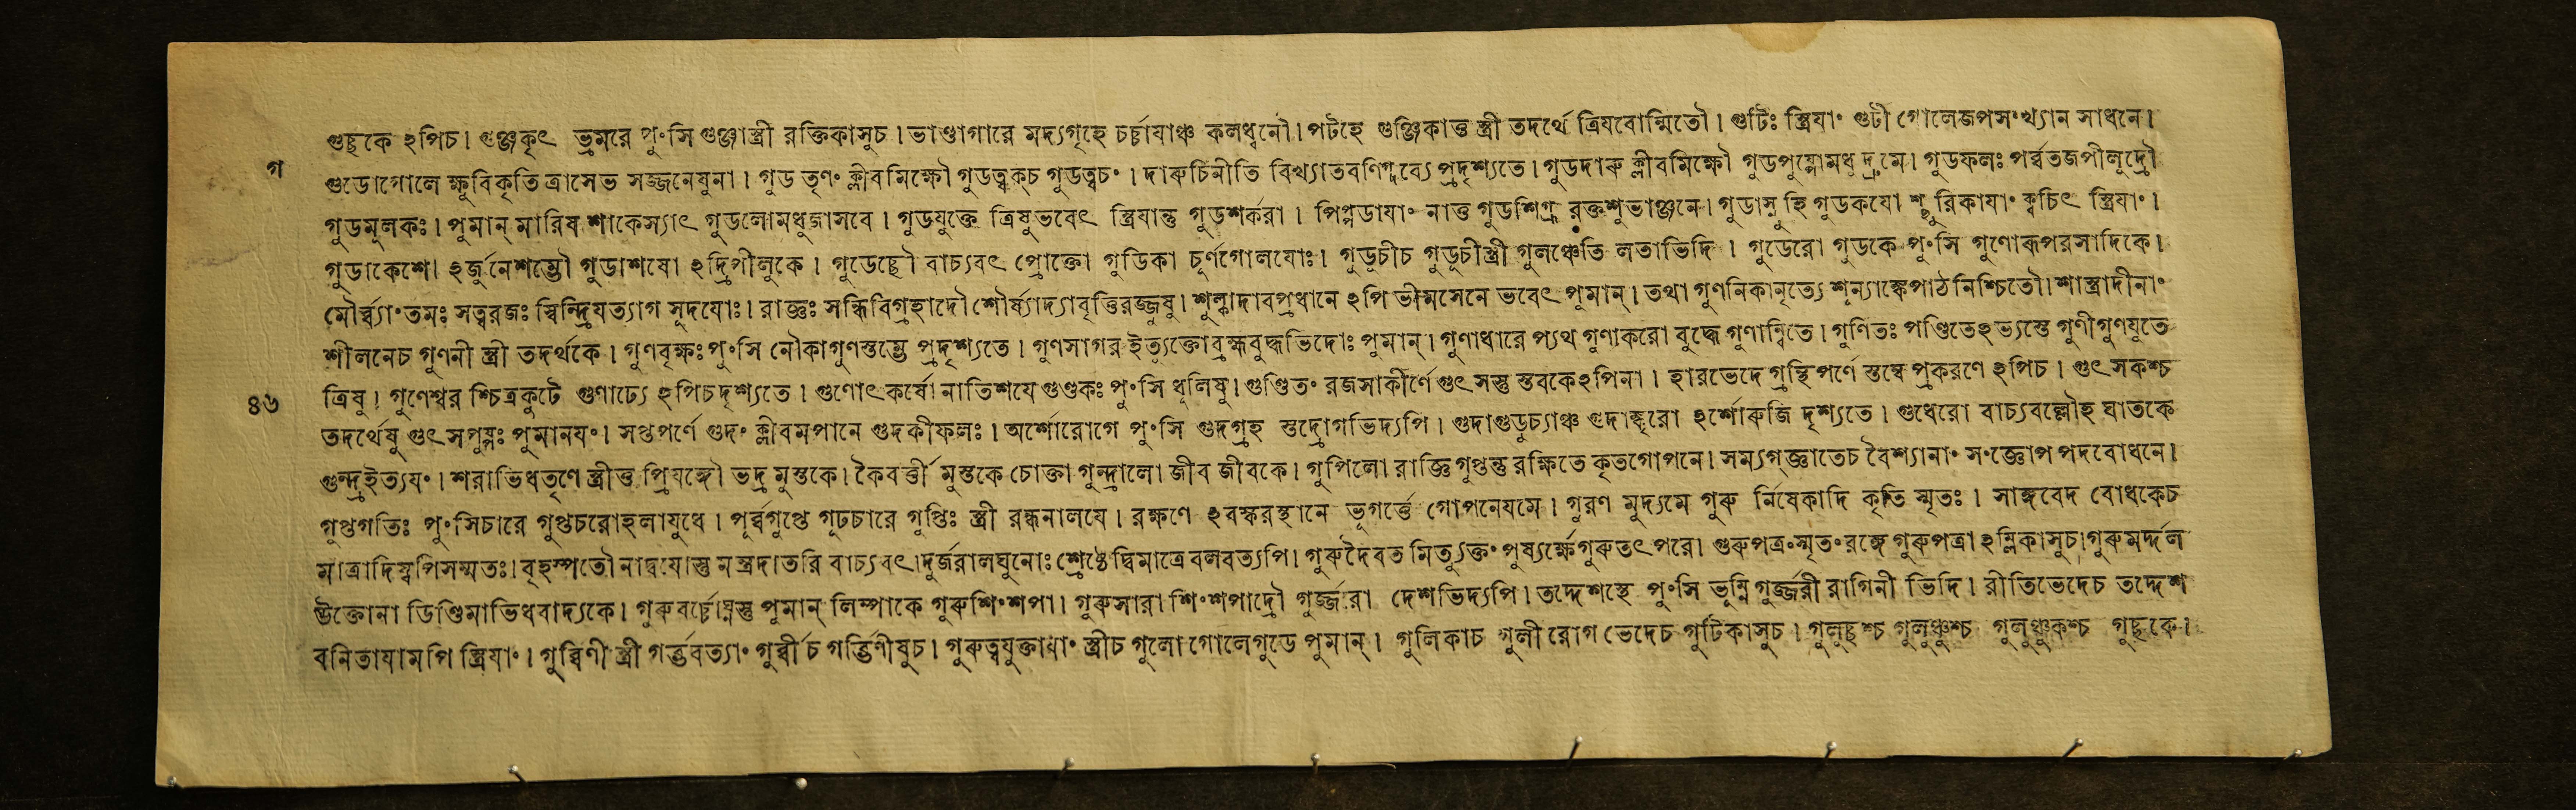 গুচ্ছকে ঽপিচ। গুঞ্জকৃৎ ভ্রমরে পুংসি গুঞ্জাস্ত্রী রক্তিকাসুচ। ভাণ্ডাগারে মদ্যগৃহে চর্চ্চাযাঞ্চ কলধ্বনৌ। পটহে গুঞ্জিকাত্ত স্ত্রী তদর্থে ত্রিযবোন্মিতৌ। গুটিঃ স্ত্রিযাং গুটী গোলেজপসংখ্যান সাধনে।
গ
গুডোগোলে ক্ষুবিকৃতি ত্রাসেভ সজ্জনেষুনা। গুড তৃণং ক্লীবমিক্ষৌ গুডত্বক্চ গুডত্বচং। দারুচিনীতি বিখ্যাতবণিগ্দ্রব্যে প্রদৃশ্যতে। গুডদারু ক্লীবমিক্ষৌ গুডপুষ্পোমধু দ্রুমে। গুডফলঃ পর্ব্বতজপীলুদ্রৌ
গুডমূলকঃ। পুমান্ মারিষ শাকেস্যাৎ গুডলোমধুজাসবে। গুডযুক্তে ত্রিষুভবেৎ স্ত্রিযান্তু গুডশর্করা। নাত্ত গুডশিগ্রু রক্তশুভাঞ্জনে। গুডাস্নুহি গুডকযো ক্বচিৎ স্ত্রিযাং।
গুডাকেশো ঽর্জুনেশম্ভৌ গুডাশযো ঽদ্রিপীলুকে। গুডেচ্ছৌ বাচ্যবৎ প্রোক্তো গুডিকা চূর্ণগোলযোঃ। গুডূচীচ গুডূচীস্ত্রী গুলঞ্চেতি লতাভিদি। গুডেরো গুডকে পুংসি গুণোরূপরসাদিকে।
মৌর্ব্ব্যাংতমঃ সত্বরজঃ স্বিন্দ্রিযত্যাগ সূদযোঃ। রাজ্ঞঃ সন্ধিবিগ্রহাদৌ শৌর্য্যাদ্যাবৃত্তিরজ্জুষু। শুল্কাদাবপ্রধানে ঽপি ভীমসেনে ভবেৎ পুমান্। তথা গুণনিকানৃত্যে শূন্যাঙ্কেপাঠ নিশ্চিতৌ। শাস্ত্রাদীনাং
শীলনেচ গুণনী স্ত্রী তদর্থকে। গুণবৃক্ষঃ পুংসি নৌকাগুণস্তম্ভে প্রদৃশ্যতে। গুণসাগর ইত্যুক্তোব্রহ্মবুদ্ধভিদোঃ পুমান্। গুণাধারে প্যথ গুণাকরো বুদ্ধে গুণান্বিতে। গুণিতঃ পণ্ডিতেঽভ্যস্তে গুণীগুণযুতে
৪৬
ত্রিষু। গুণেশ্বর শ্চিত্রকুটে গুণাঢ্যে ঽপিচদৃশ্যতে। গুণোৎকর্ষো নাতিশযে গুণ্ডকঃ পুংসি ধূলিষু। গুণ্ডিতং রজসাকীর্ণে গুৎসস্তু স্তবকেঽপিনা। হারভেদে গ্রন্থিপর্ণে স্তম্বে প্রকরণে ঽপিচ। গুৎসকশ্চ
তদর্থেষু গুৎসপুষ্পঃ পুমানযং। সপ্তপর্ণে গুদং ক্লীবমপানে গুদকীফলঃ। অর্শোরোগে পুংসি গুদগ্রহ স্তদ্রোগভিদ্যপি। গুদাগুডূচ্যাঞ্চ গুদাঙ্কুরো ঽর্শোরুজি দৃশ্যতে। গুধেরো বাচ্যবল্লৌহ ঘাতকে
গুন্দ্রইত্যযং। শরাভিধতৃণে স্ত্রীত্ত প্রিযঙ্গৌ ভদ্র মুস্তকে। কৈবর্ত্তী মুস্তকে চোক্তা গুন্দ্রালো জীব জীবকে। গুপিলো রাজ্ঞি গুপ্তন্তু রক্ষিতে কৃতগোপনে। সম্যগ্জ্ঞাতেচ বৈশ্যানাং সংজ্ঞোপ পদবোধনে।
গুপ্তগতিঃ পুংসিচারে গুপ্তচরোহলাযুধে। পূর্ব্বগুপ্তে গূঢচারে গুপ্তিঃ স্ত্রী রন্ধনালযে। রক্ষণে ঽবস্করস্থানে ভূগর্ত্তে গোপনেযমে। গুরণ মুদ্যমে গুরু র্নিষেকাদি কৃতি স্মৃতঃ। সাঙ্গবেদ বোধকেচ
মাত্রাদিষ্বপিসম্মতঃ। বৃহস্পতৌ নাদ্বযোস্তু মন্ত্রদাতরি বাচ্যবৎ। দুর্জরালঘুনোঃ শ্রেষ্ঠে দ্বিমাত্রে বলবত্যপি। গুরুদৈবত মিত্যুক্তং পুষ্যর্ক্ষে গুরুতৎপরে। গুরুপত্রংস্মৃতংরঙ্গে গুরুপত্রা ঽম্লিকাসুচ। গুরুমর্দ্দল
উক্তোনা ডিণ্ডিমাভিধবাদ্যকে। গুরুবর্চ্চোঘ্নস্তু পুমান্ লিম্পাকে গুরুশিংশপা। গুরুসারা শিংশপাদ্রৌ গুর্জ্জরা দেশভিদ্যপি। তদ্দেশস্থে পুংসি ভূম্নি গুর্জ্জরী রাগিনী ভিদি। রীতিভেদেচ তদ্দেশ
বনিতাযামপি স্ত্রিযাং। গুর্ব্বিণী স্ত্রী গর্ভবত্যাং গুর্ব্বীচ গর্ভ্ভিণীষুচ। গুরুত্বযুক্তাযাং স্ত্রীচ গুলো গোলেগুডে পুমান্। গুলিকাচ গুলী রোগ ভেদেচ গুটিকাসুচ। গুলুচ্ছশ্চ গুলুঞ্চুশ্চ গুলুঞ্চুকশ্চ গুচ্ছকে।